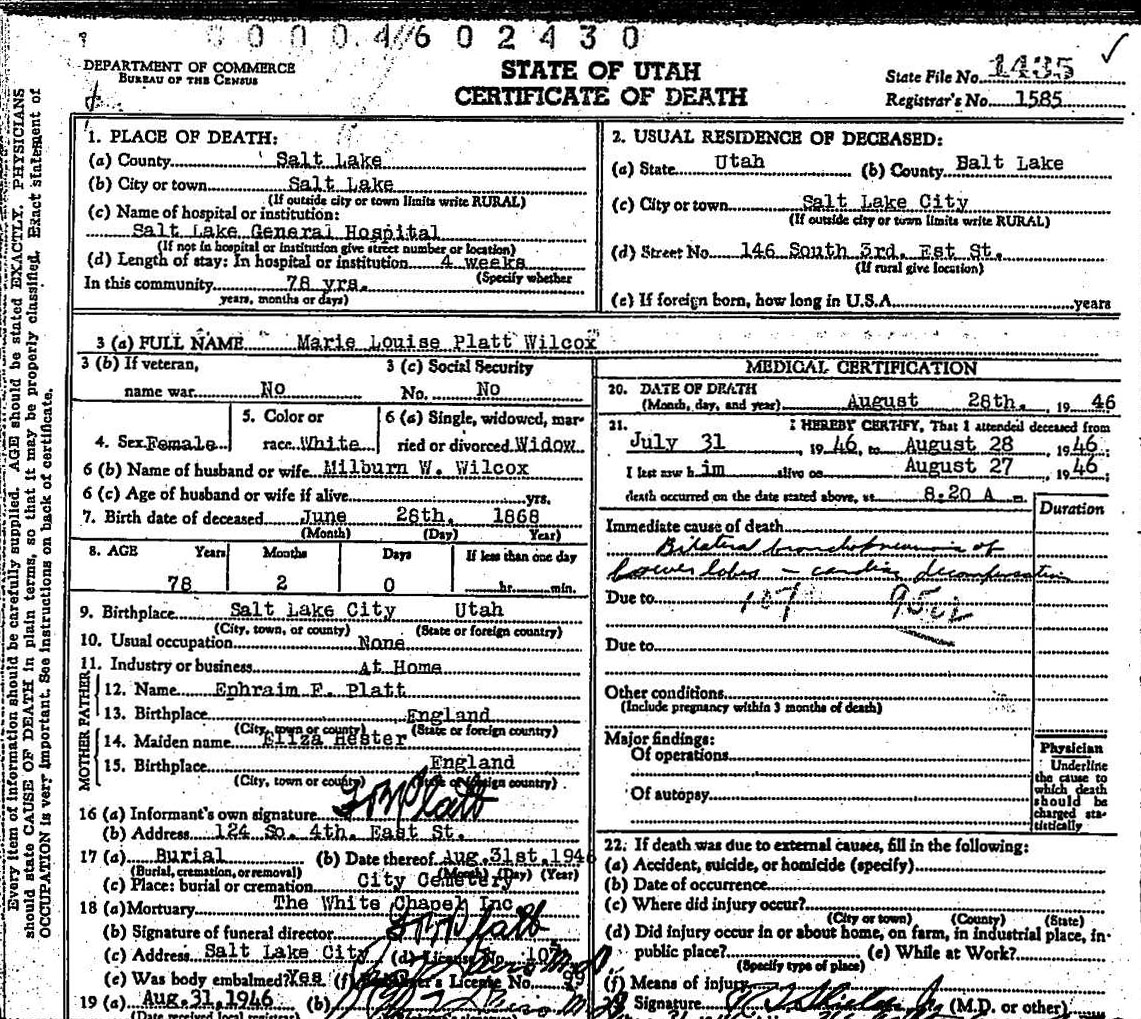 00004602430
DEPARTMENT OF COMMERCE
BUREAU OF THE CENSUS
STATE OF UTAH
CERTIFICATE OF DEATH
State File No. 1435
Registrar's No. 1585
Every item of information should be carefully supplied. AGE should be stated EXACTLY. PHYSICIANS
should state CAUSE OF DEATH in plain terms, so that it may be properly classified. Exact statement of
OCCUPATION is very important. See instructions on back of certificate.
1. PLACE OF DEATH:
(a) County Salt Lake
(b) City or town Salt Lake
(If outside city or town limits write RURAL)
(c) Name of hospital or institution:
Salt Lake General Hospital
(If not in hospital or institution give street number or location)
(d) Length of stay: In hospital or institution 4 weeks
(Specify whether
In this community 78 yrs.
years, months or days)
2. USUAL RESIDENCE OF DECEASED:
(a) State Utah (b) County Balt Lake
(c) City or town Salt Lake City
(If outside city or town limits write RURAL)
(d) Street No. 146 South 3rd. Est St.
(If rural give location)
(e) If foreign born, how long in U.S.A. years
3 (a) FULL NAME Marie Louise Platt Wilcox
3 (b) If veteran, 3 (c) Social Security
name war No No. No
4. Sex Female 5. Color or race White 6 (a) Single, widowed, married or divorced Widow
6 (b) Name of husband or wife Milburn W. Wilcox
6 (c) Age of husband or wife if alive yrs.
7. Birth date of deceased June 28th. 1868
(Month) (Day) Year)
8. AGE Years Months Days If less than one day
78 2 0 hr. min.
9. Birthplace Salt Lake City Utah
(City, town, or county) (State or foreign country)
10. Usual occupation None
11. Industry or business At Home
FATHER
12. Name Ephraim F. Platt
13. Birthplace England
(City, town or county) (State or foreign country)
MOTHER
14. Maiden name Eliza Hester
15. Birthplace England
(City, town or county) (State or foreign country)
16 (a) Informant's own signature Platt
(b) Address 124 So. 4th. East St.
17 (a) Burial (b) Date thereof Aug. 31st. 1946
(Burial, cremation, or removal) (Month) (Day) (Year)
(c) Place: burial or cremation City Cemetery
18 (a) Mortuary The White Chapel Inc
(b) Signature of funeral director Platt
(c) Address Salt Lake City (d) License No. 105
(e) Was body embalmed? Yes (f) Embalmer's License No. 99
19 (a) Aug. 31, 1946 (b)
(Date received local registrar)
MEDICAL CERTIFICATION
20. DATE OF DEATH
(Month, day, and year) August 28th. , 19 46
21. I HEREBY CERTIFY, That I attended deceased from
July 31 , 19 46, to August 28 , 19 46;
I last saw h im alive on August 27 , 19 46;
death occurred on the date stated above, at 8:20 A m.
Duration
Immediate cause of death
Bilateral bronchopneumonia of
Lower lobes – cardiac decompensation
Due to 107 95c2
Due to
Other conditions
(Include pregnancy within 3 months of death)
Major findings:
Of operations
Of autopsy
Physician
Underline
the cause to
which death
should be
charged sta-
tistically
22. If death was due to external causes, fill in the following:
(a) Accident, suicide, or homicide (specify)
(b) Date of occurrence
(c) Where did injury occur?
(City or town) (County) (State)
(d) Did injury occur in or about home, on farm, in industrial place, in-
public place? (e) While at Work?
(Specify type of place)
(f) Means of injury
23 Signature (M.D. or other)